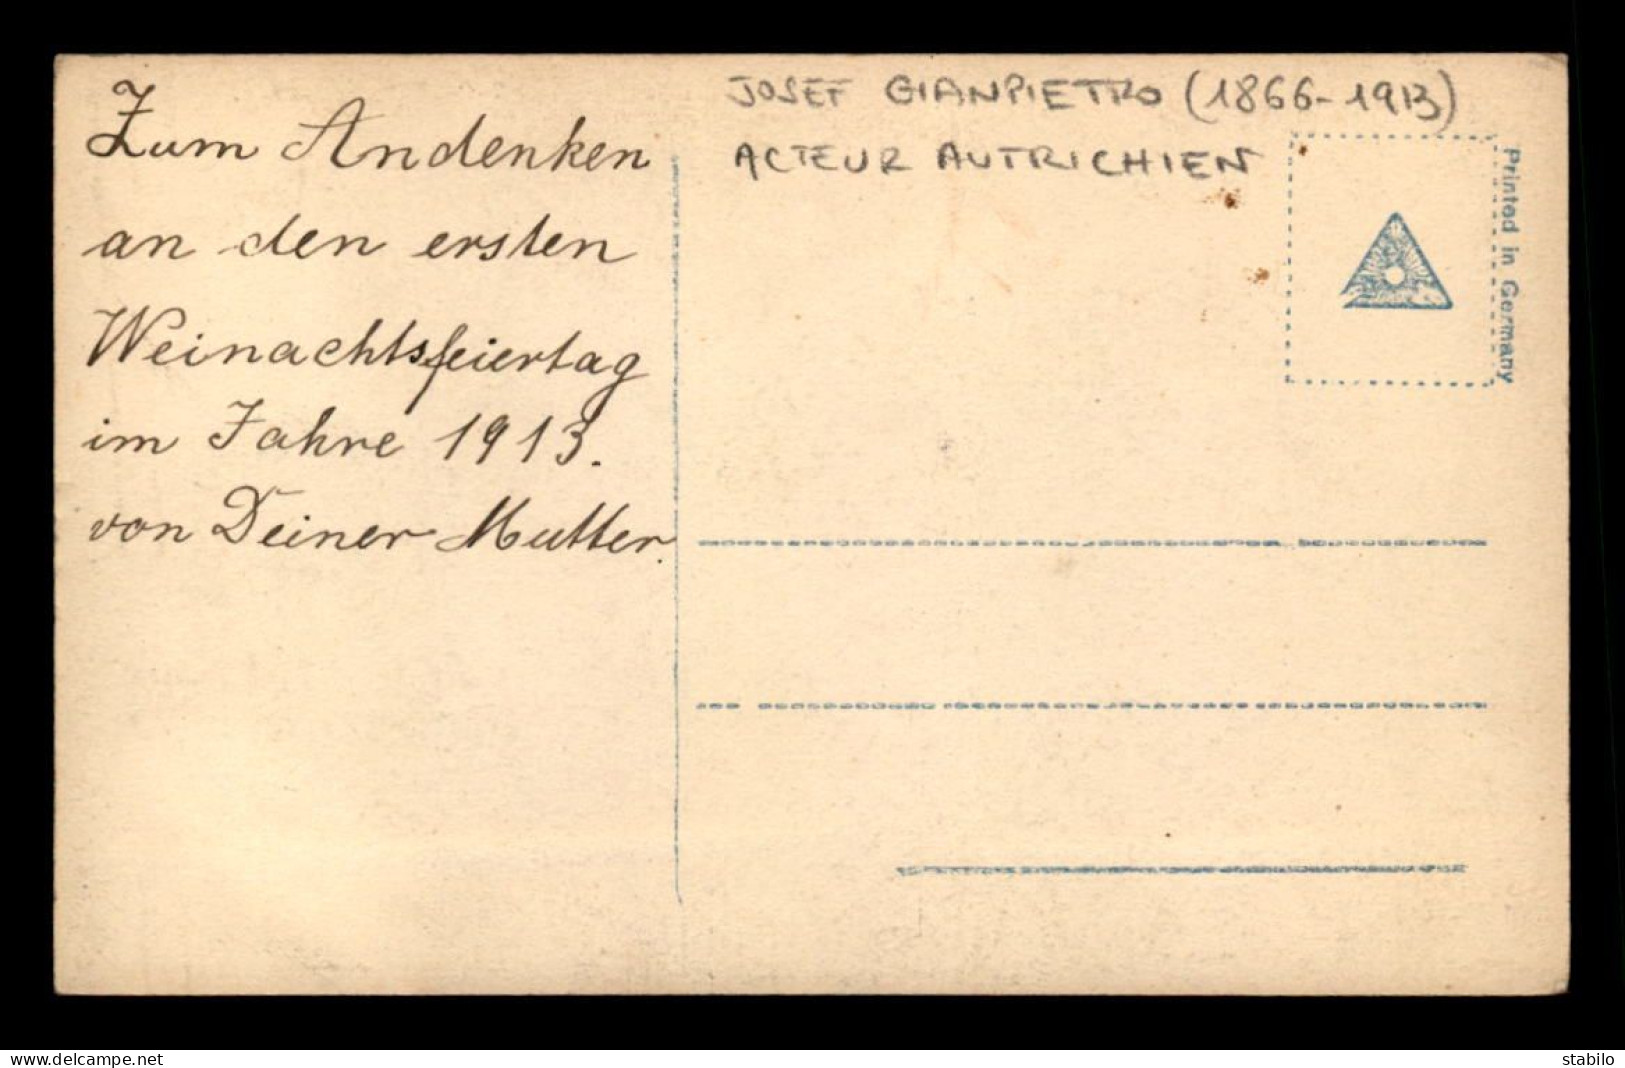 Zum Andenken
an den ersten
Weinachtsfeiertag
im Jahre 1913.
von Deiner Mutter.
JOSEF GIANPIETRO (1866-1913)
ACTEUR AUTRICHIEN
Printed in Germany
www.delcampe.net
stabilo